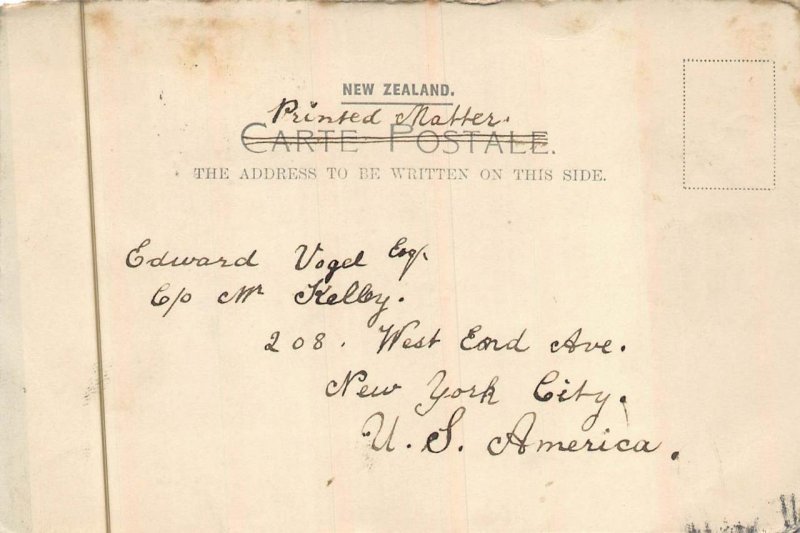 NEW ZEALAND.
Printed Matter.
CARTE POSTALE.
THE ADDRESS TO BE WRITTEN ON THIS SIDE.
Edward Vogel Esq.
C/o Mr Kelby.
208. West End Ave.
New York City.
U. S. America.